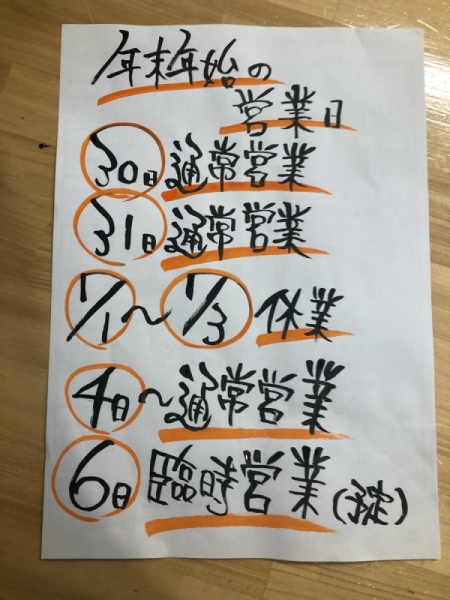 年末年始の
営業日
30日通常営業
31日通常営業
1/1〜1/3 休業
4日〜通常営業
6日臨時営業(予定)